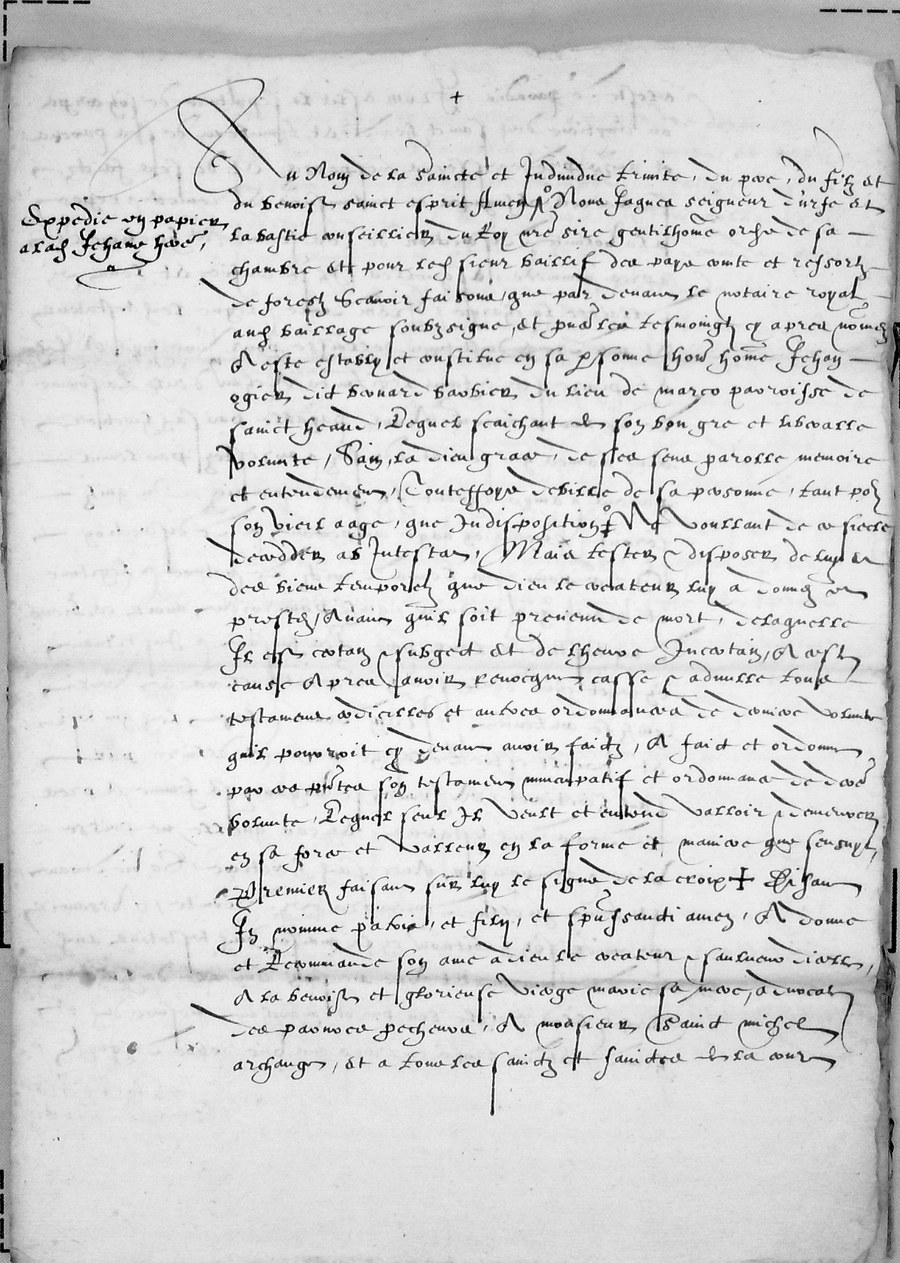 +
Au Nom de la saincte et Individue trinite, du pere, du filz et
du benoist sainct esprit Amen, Nous Jaques seigneur d'urfe et
la bastie conseillier du Roy nre sire gentilhome orde de sa
chambre et pour led sieur baillif des pays conte et ressortz
de forestz Scavoir faisons, que par devant le notaire royal
aud bailliage soubzsigne, et pns les tesmoingtz cy apres nomes
A este estably et constitue en sa psonne hon home Jehan
ogier dit barbier du lieu de marco parroisse de
sainct heand, Lequel scaichant de son bon gre et liberalle
volunte, Sain, la dieu grace, de ses sens parolle memoire
et entendement, Touteffoys debille de sa personne, tant po
son vieil aage, que Indisposition, Ne voullant de ce siecle
decedder ab Intestat, Mais tester & disposer de luy et
des biens temporelz que dieu le createur luy a donnez et
prestez, Avant quil soit prevenu de mort, de laquelle
Il est certain & subgect et de lheure Incertain, A cest
cause Apres avoir revocque casse & adnulle tous
testamens codicilles et aultres ordonnances de derniere volunte
quil pourroit cy devant avoir faictz, A faict et ordonne
par ces pntes son testament nuncupatif et ordonnance de der
volunte, Lequel seul Il veult et entend valloir & demeurer
en sa force et valleur en la forme et maniere que sensuyt,
Premier faisant sur luy le signe de la croix + Disant
In nomine patris, et filij, et spus sancti amen, A donne
et Recommande son ame a dieu le createur & saulveur dicelle,
A la benoiste et glorieuse vierge marie sa mere, advocate
des pauvres pecheurs, A monsieur Sainct michel
archange, et a tous les sainctz et sainctes de la court
Expedie en papier
a lad Jehane here,